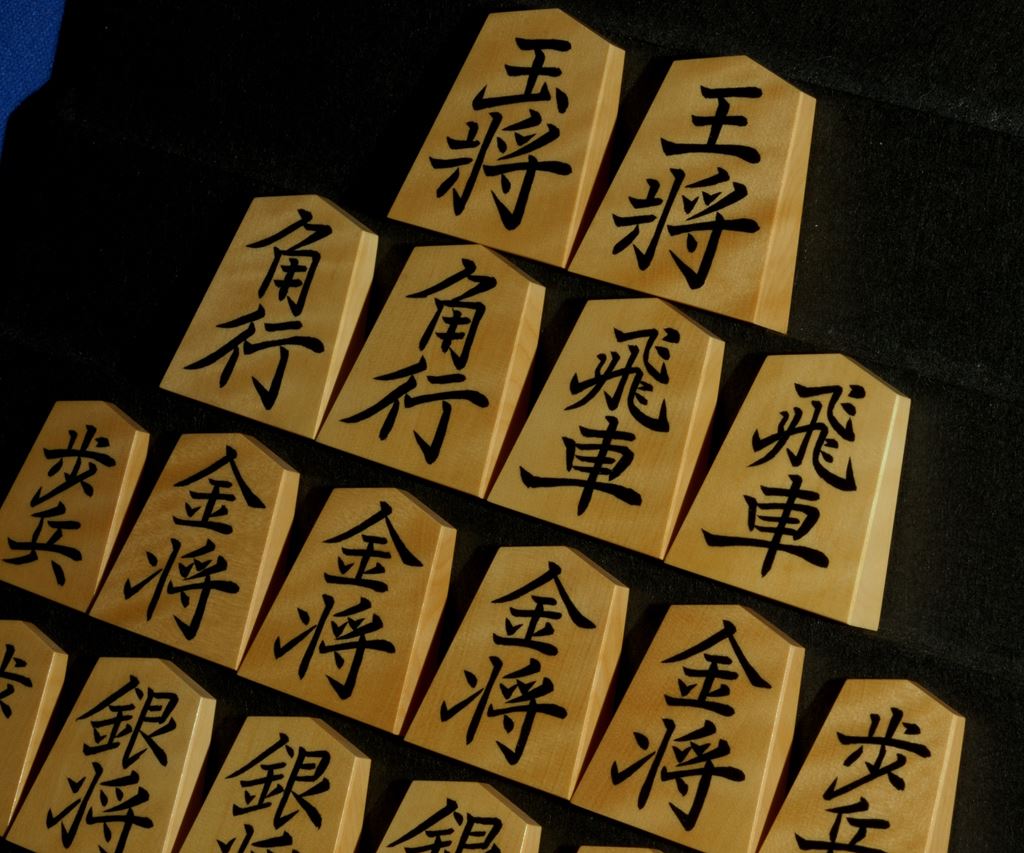 玉将
王将
角行
角行
飛車
飛車
歩兵
金将
金将
金将
金将
歩兵
歩
銀将
銀将
銀